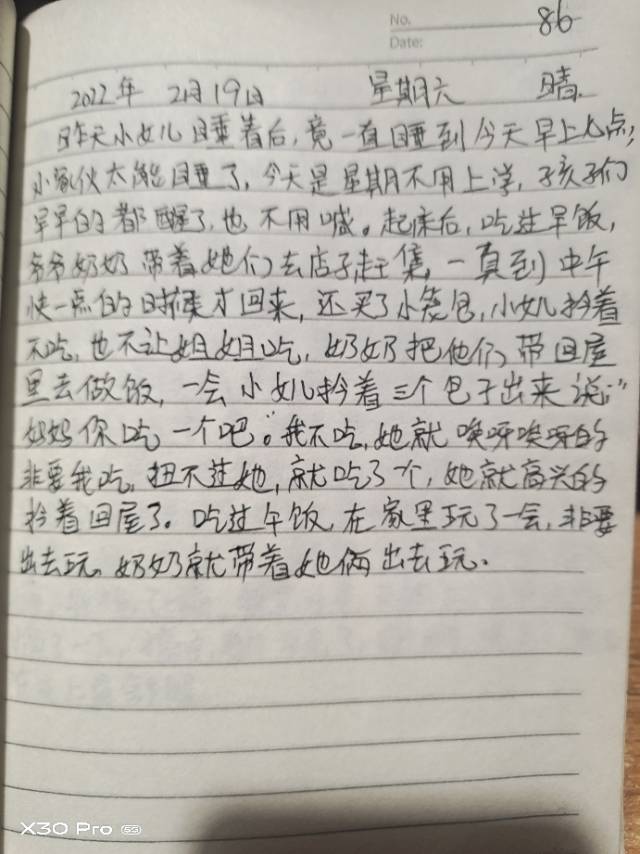 No. 86
Date:
2022年 2月19日 星期六 晴
昨天小女儿睡着后,竟一直睡到今天早上七点,
小家伙太能睡了,今天是星期不用上学,孩子们
早早的都醒了,也不用喊。起床后,吃过早饭,
爷爷奶奶带着她们去店子赶集,一直到中午
快一点的时候才回来,还买了小笼包,小女儿拎着
不吃,也不让姐姐吃,奶奶把他们带回屋
里去做饭,一会小女儿拎着三个包子出来说:“
妈妈你吃一个吧。”我不吃,她就唉呀唉呀的
非要我吃,扭不过她,就吃了一个,她就高兴的
拎着回屋了。吃过午饭,在家里玩了一会,非要
出去玩。奶奶就带着她俩出去玩.
X30 Pro 5G